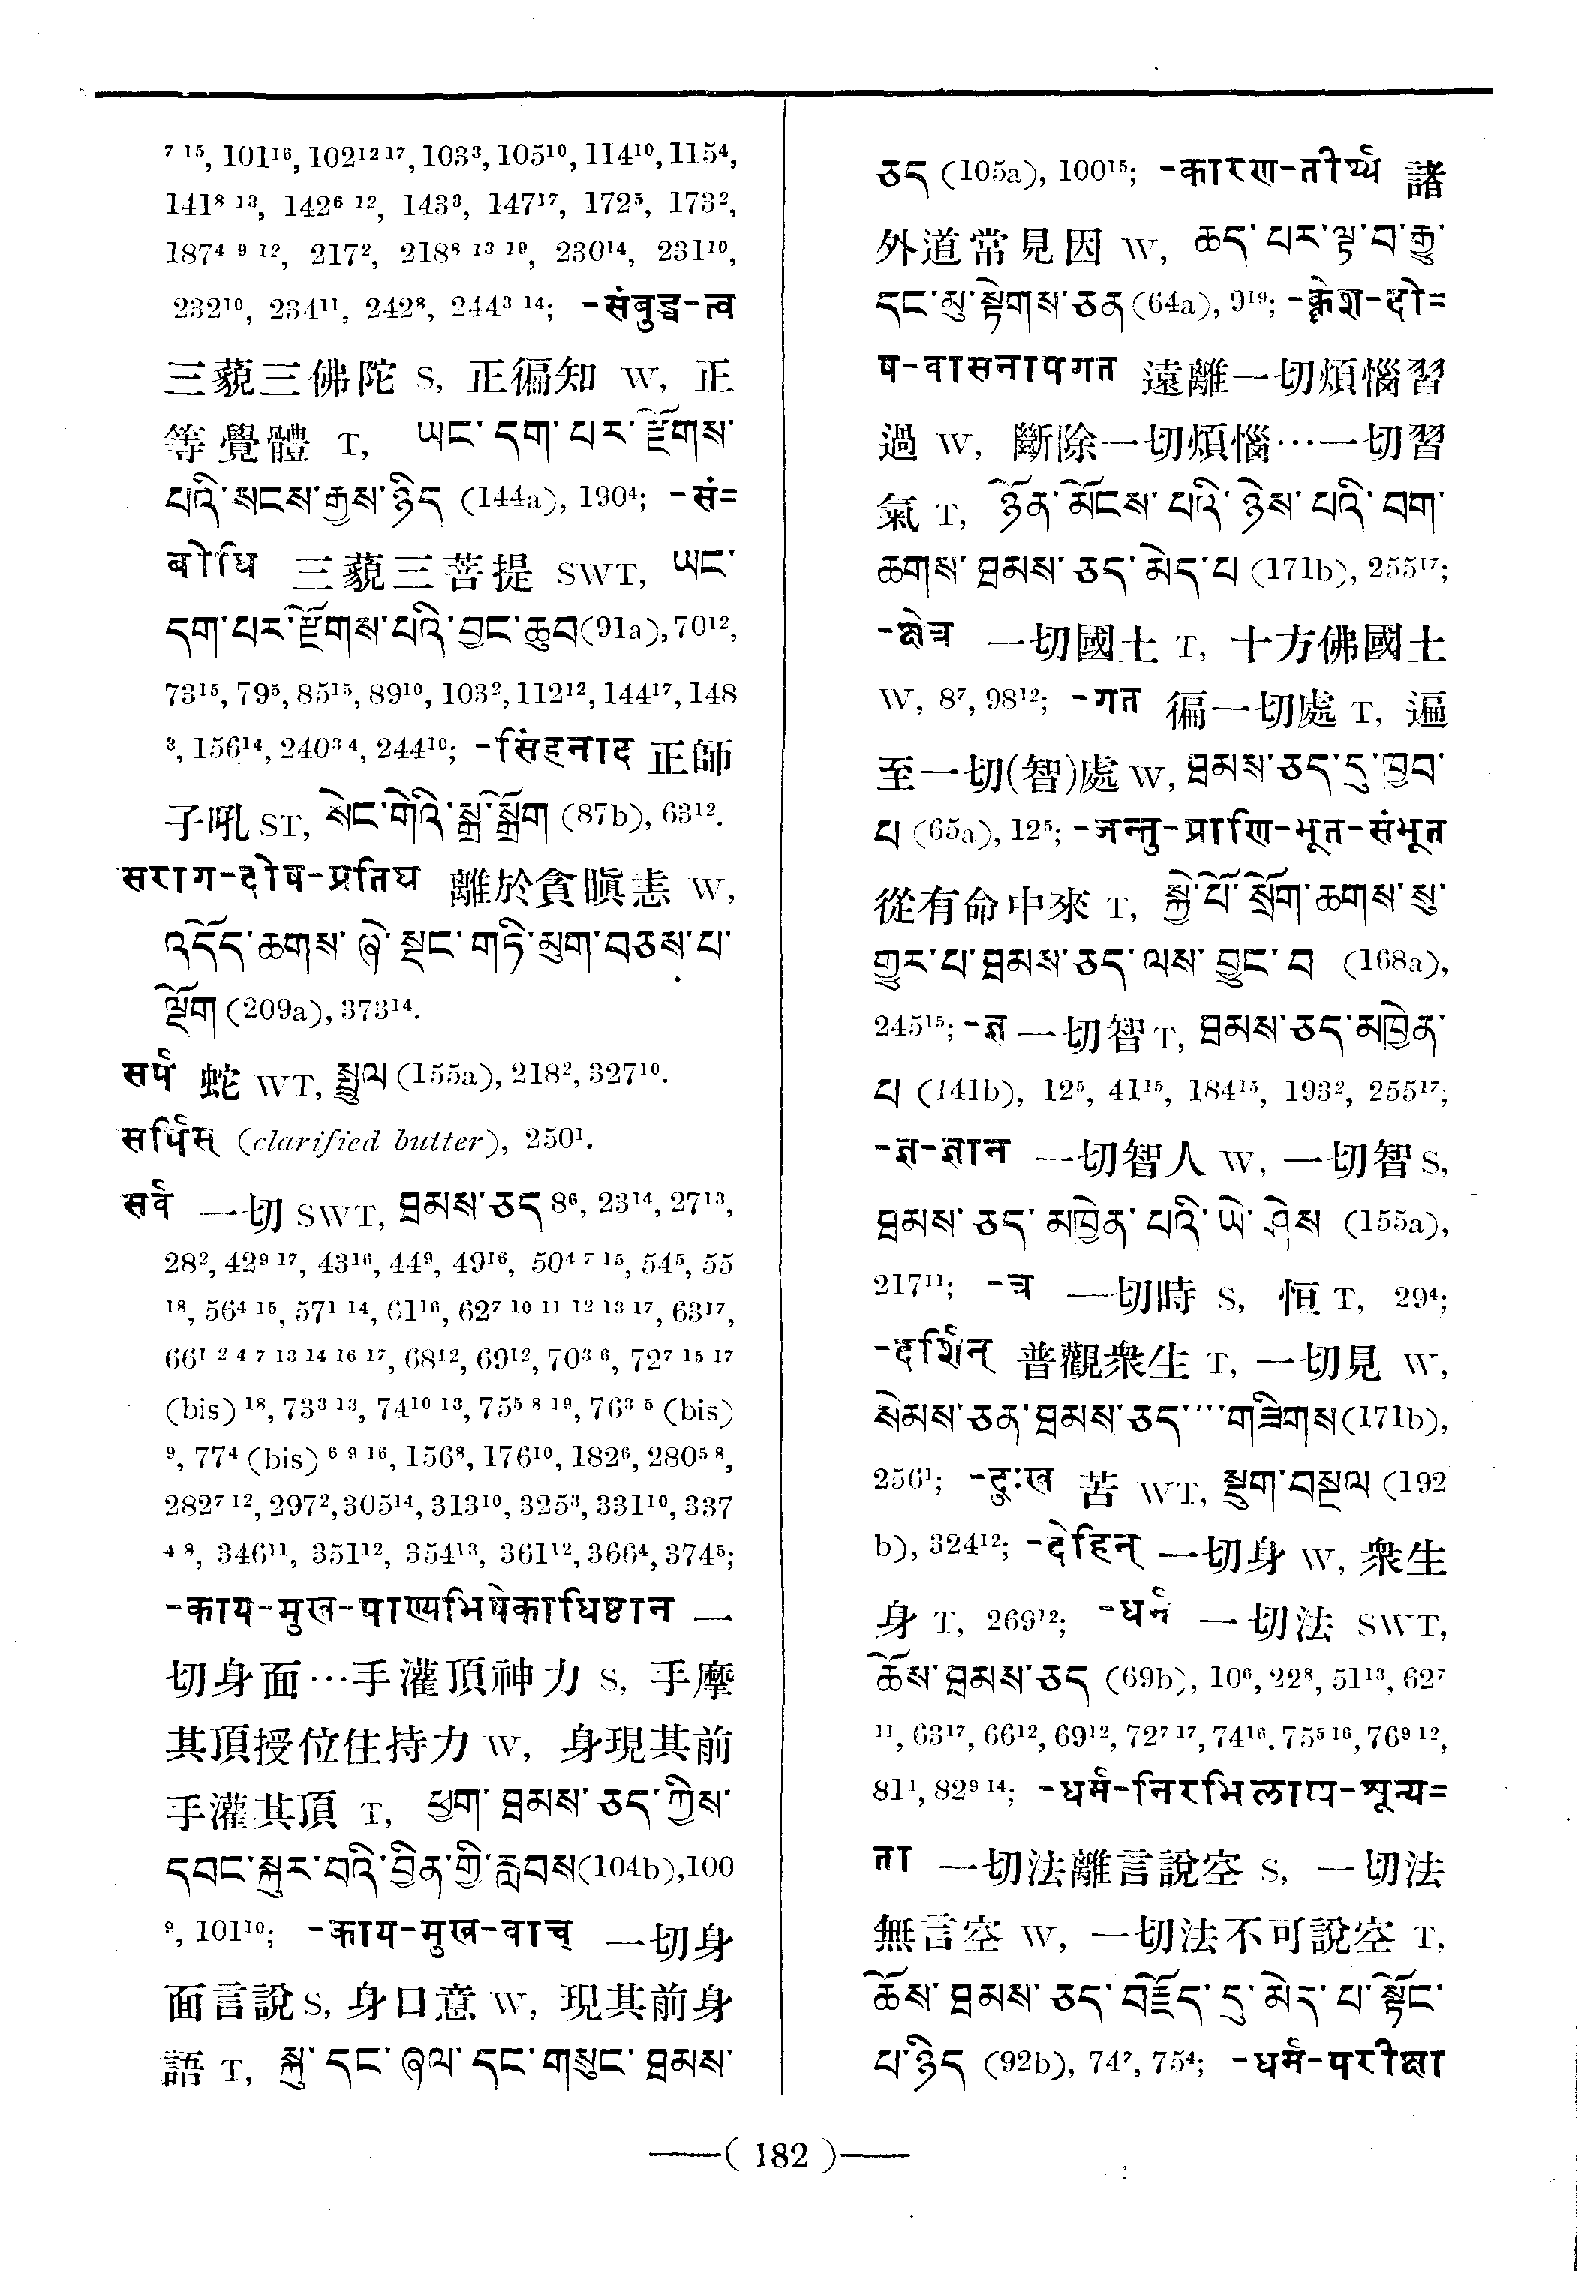 ⁷ ¹⁵, 101¹⁶, 102¹² ¹⁷, 103³, 105¹⁰, 114¹⁰, 115⁴,
141⁸ ¹³, 142⁶ ¹², 143³, 147¹⁷, 172⁵, 173²,
187⁴ ⁹ ¹², 217², 218⁸ ¹³ ¹⁹, 230¹⁴, 231¹⁰,
232¹⁰, 234¹¹, 242⁸, 244³ ¹⁴; -संबुद्ध-त्व
三藐三佛陀 S, 正徧知 W, 正
等覺體 T, ཡང་དག་པར་རྫོགས་
པའི་སངས་རྒྱས་ཉིད (144a), 190⁴; -सं=
बोधि 三藐三菩提 SWT, ཡང་
དག་པར་རྫོགས་པའི་བྱང་ཆུབ (91a), 70¹²,
73¹⁵, 79⁵, 85¹⁵, 89¹⁰, 103², 112¹², 144¹⁷, 148
³, 156¹⁴, 240³ ⁴, 244¹⁰; -सिंहनाद 正師
子吼 ST, སེང་གེའི་སྒྲ་སྒྲོག (87b), 63¹².
सराग-दोष-प्रतिघ 離於貪瞋恚 W,
འདོད་ཆགས་ཞེ་སྡང་གཏི་མུག་བཅས་པ་
ལྡོག (209a), 373¹⁴.
सर्प 蛇 WT, སྦྲུལ (155a), 218², 327¹⁰.
सर्पिस् (clarified butter), 250¹.
सर्व 一切 SWT, ཐམས་ཅད 8⁶, 23¹⁴, 27¹³,
28², 42⁹ ¹⁷, 43¹⁶, 44⁹, 49¹⁶, 50⁴ ⁷ ¹⁵, 54⁵, 55
¹⁸, 56⁴ ¹⁵, 57¹ ¹⁴, 61¹⁶, 62⁷ ¹⁰ ¹¹ ¹² ¹³ ¹⁷, 63¹⁷,
66¹ ² ⁴ ⁷ ¹³ ¹⁴ ¹⁶ ¹⁷, 68¹², 69¹², 70³ ⁶, 72⁷ ¹⁵ ¹⁷
(bis) ¹⁸, 73³ ¹³, 74¹⁰ ¹³, 75⁵ ⁸ ¹⁹, 76³ ⁵ (bis)
⁹, 77⁴ (bis) ⁶ ⁹ ¹⁶, 156⁸, 176¹⁰, 182⁶, 280⁵ ⁸,
282⁷ ¹², 297², 305¹⁴, 313¹⁰, 325³, 331¹⁰, 337
⁴ ⁸, 346¹¹, 351¹², 354¹³, 361¹², 366⁴, 374⁵;
-काय-मुख-पाण्यभिषेकाधिष्ठान 一
切身面…手灌頂神力 S, 手摩
其頂授位住持力 W, 身現其前
手灌其頂 T, ཕྱག་ཐམས་ཅད་ཀྱིས་
དབང་སྐུར་བའི་བྱིན་གྱི་རླབས (104b), 100
⁹, 101¹⁰; -काय-मुख-वाच् 一切身
面言說 S, 身口意 W, 現其前身
語 T, སྐུ་དང་ཞལ་དང་གསུང་ཐམས་
ཅད (105a), 100¹⁵; -कारण-तीर्थ्य 諸
外道常見因 W, ཆད་པར་ལྟ་བ་རྒྱུ་
དང་མུ་སྟེགས་ཅན (64a), 9¹⁹; -क्लेश-दो=
ष-वासनापगत 遠離一切煩惱習
過 W, 斷除一切煩惱…一切習
氣 T, ཉོན་མོངས་པའི་ཉེས་པའི་བག་
ཆགས་ཐམས་ཅད་མེད་པ (171b), 255¹⁷;
-क्षेत्र 一切國土 T, 十方佛國土
W, 8⁷, 98¹²; -गत 徧一切處 T, 遍
至一切(智)處 W, ཐམས་ཅད་དུ་ཁྱབ་
པ (65a), 12⁵; -जन्तु-प्राणि-भूत-संभूत
從有命中來 T, སྐྱེ་པོ་སྲོག་ཆགས་སུ་
གྱུར་པ་ཐམས་ཅད་ལས་བྱུང་བ (168a),
245¹⁵; -ज्ञ 一切智 T, ཐམས་ཅད་མཁྱེན་
པ (141b), 12⁵, 41¹⁵, 184¹⁵, 193², 255¹⁷;
-ज्ञ-ज्ञान 一切智人 W, 一切智 S,
ཐམས་ཅད་མཁྱེན་པའི་ཡེ་ཤེས (155a),
217¹¹; -त्र 一切時 S, 恒 T, 29⁴;
-दर्शिन् 普觀衆生 T, 一切見 W,
སེམས་ཅན་ཐམས་ཅད་····གཟིགས (171b),
256¹; -दुःख 苦 WT, སྡུག་བསྔལ (192
b), 324¹²; -देहिन् 一切身 W, 衆生
身 T, 269¹²; -धर्म 一切法 SWT,
ཆོས་ཐམས་ཅད (69b), 10⁶, 22⁸, 51¹³, 62⁷
¹¹, 63¹⁷, 66¹², 69¹², 72⁷ ¹⁷, 74¹⁶, 75⁵ ¹⁶, 76⁹ ¹²,
81¹, 82⁹ ¹⁴; -धर्म-निरभिलाप्य-शून्य=
ता 一切法離言說空 S, 一切法
無言空 W, 一切法不可說空 T,
ཆོས་ཐམས་ཅད་བརྗོད་དུ་མེད་པ་སྟོང་
པ་ཉིད (92b), 74⁷, 75⁴; -धर्म-परीक्षा
—( 182 )—